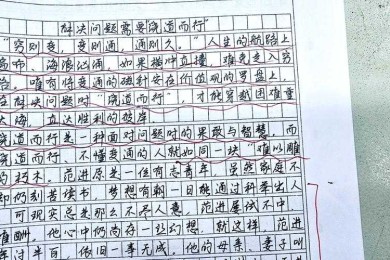 解决问题需要绕道而行
"穷则变，变则通，通则久。"人生的航路上
密布，海浪汹涌，如果横冲直撞，难免走入穷
路。唯有将变通的磁针安在价值观的罗盘上，
在解决问题时"绕道而行"，才能穿越困难重
大海，直达胜利的彼岸
绕道而行是一种面对问题时的果敢与智慧，而
绕道而行、不懂变通的人就如同一块"难以雕
的朽木。范进原是一位有志青年，虽然家庭不
却仍刻苦读书，梦想有朝一日能通过科举出人
可现实总是那么不尽人意，范进屡试不中
难酬。他心中仍尚存一丝幻想，就这样，范进
年过半百，依旧一事无成，他的母亲、妻子叫